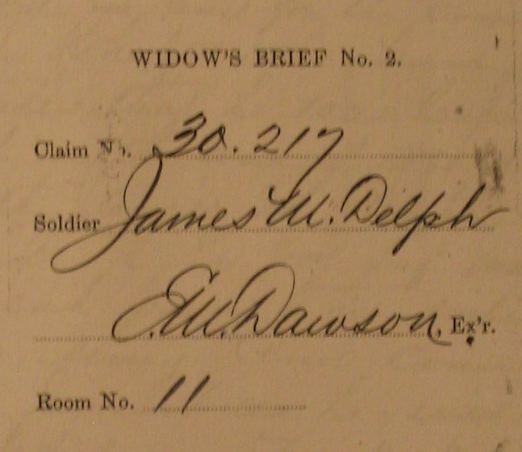 WIDOW'S BRIEF No. 2.
Claim No. 30.217
Soldier James M. Delph
E.M. Dawson, Ex'r.
Room No. 11